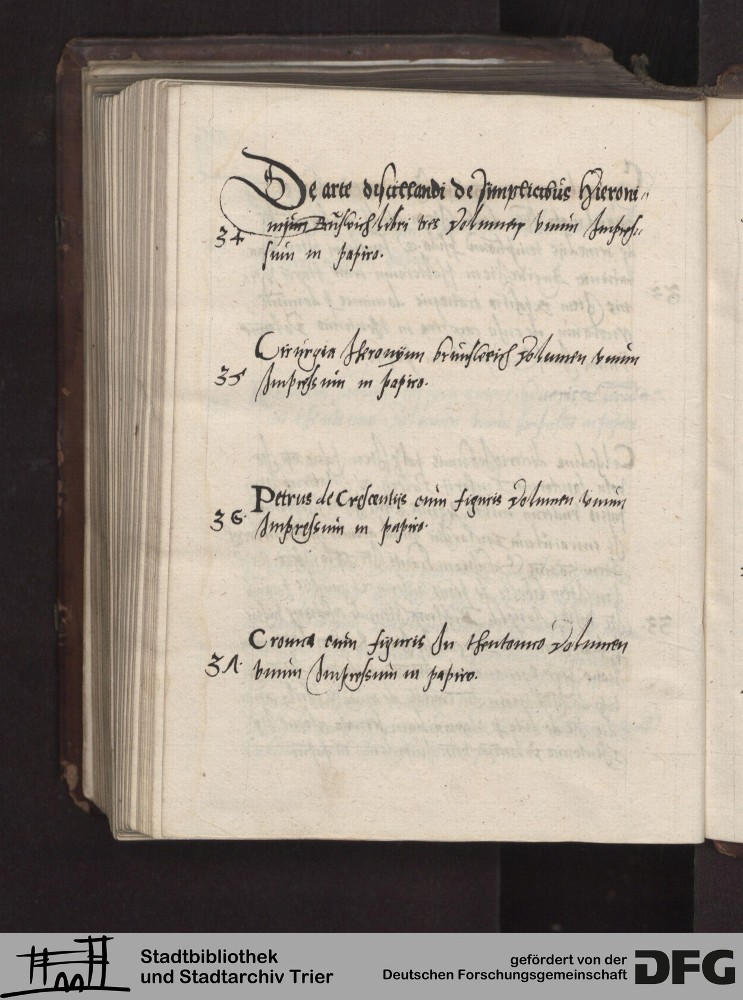 De arte destillandi de simplicibus Hieroni-
mum Brüswich libri tres Volumen vnum Impres-
34
sum in papiro.
Cirurgia Hieronÿmi brüuswich Volumen vnum
35 Impressum in papiro.
Petrus de Crescentijs cum figuris Volumen vnum
36. Impressum in papiro.
Cronica cum figuris In theutonico Volumen
37. vnum Impressum in papiro.
Stadtbibliothek
und Stadtarchiv Trier
gefördert von der
Deutschen Forschungsgemeinschaft
DFG